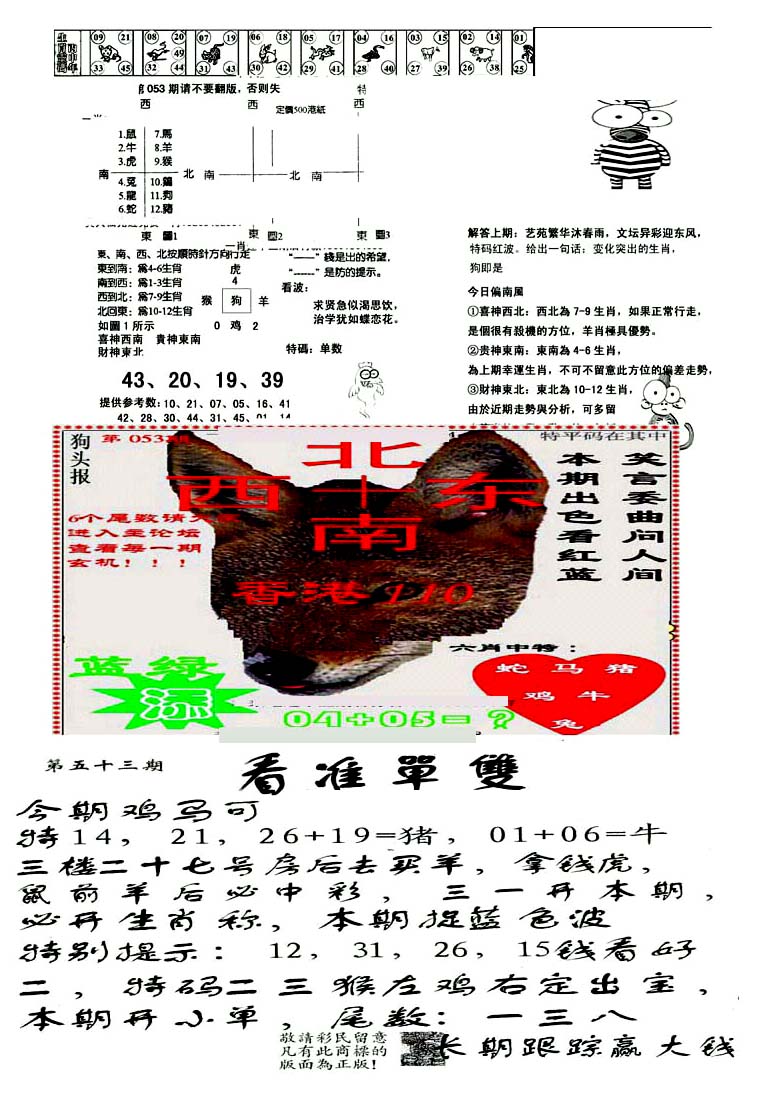 09 21 08 20 07 19 06 18 05 17 04 16 03 15 02 14 01
33 45 32 44 49 31 43 30 42 29 41 28 40 27 39 26 38 25
053期请不要翻版，否则失
特
西 西 西
定價500港紙
1.鼠 7.馬
2.牛 8.羊
3.虎 9.猴
南 北 南 北 南
4.兔 10.鷄
5.龍 11.狗
6.蛇 12.豬
東 圖1 東 圖2 東 圖3
一肖
東、南、西、北按順時針方向行走
東到南：爲4-6生肖
南到西：爲1-3生肖
西到北：爲7-9生肖
北回東：爲10-12生肖
如圖1所示
喜神西南 貴神東南
財神東北
虎
4
猴 狗 羊
0 鸡 2
“——”綫是出的希望，
“------”是防的提示。
看波：
求贤急似渴思饮，
治学犹如蝶恋花。
特碼：单数
43、20、19、39
提供参考数：10、21、07、05、16、41
42、28、30、44、31、45、01、14
解答上期：艺苑繁华沐春雨，文坛异彩迎东风，
特码红波。给出一句话：变化突出的生肖，
狗即是
今日偏南風
①喜神西北：西北為7-9生肖，如果正常行走，
是個很有殺機的方位，羊肖極具優勢。
②贵神東南：東南為4-6生肖，
為上期幸運生肖，不可不留意此方位的偏差走勢，
③財神東北：東北為10-12生肖，
由於近期走勢與分析，可多留
狗头报
第053期
北
西十东
南
香港110
6个尾数请
进入至论坛
查看每一期
玄机！！！
特平码在其中
本期出色看红蓝
英言委曲问人间
蓝绿
添
04+05=?
六肖中特：
蛇 马 猪
鸡 牛
兔
第五十三期
看准單雙
今期鸡马可
特14，21，26+19=猪，01+06=牛
三楼二十七号房后去买羊，拿钱虎，
鼠前羊后必中彩，三一开本期，
必开生肖称，本期捉蓝色波
特别提示：12，31，26，15钱看好
二，特码二三猴左鸡右定出宝，
本期开小单，尾数：一三八
敬請彩民留意
凡有此商標的
版面為正版！
长期跟踪赢大钱